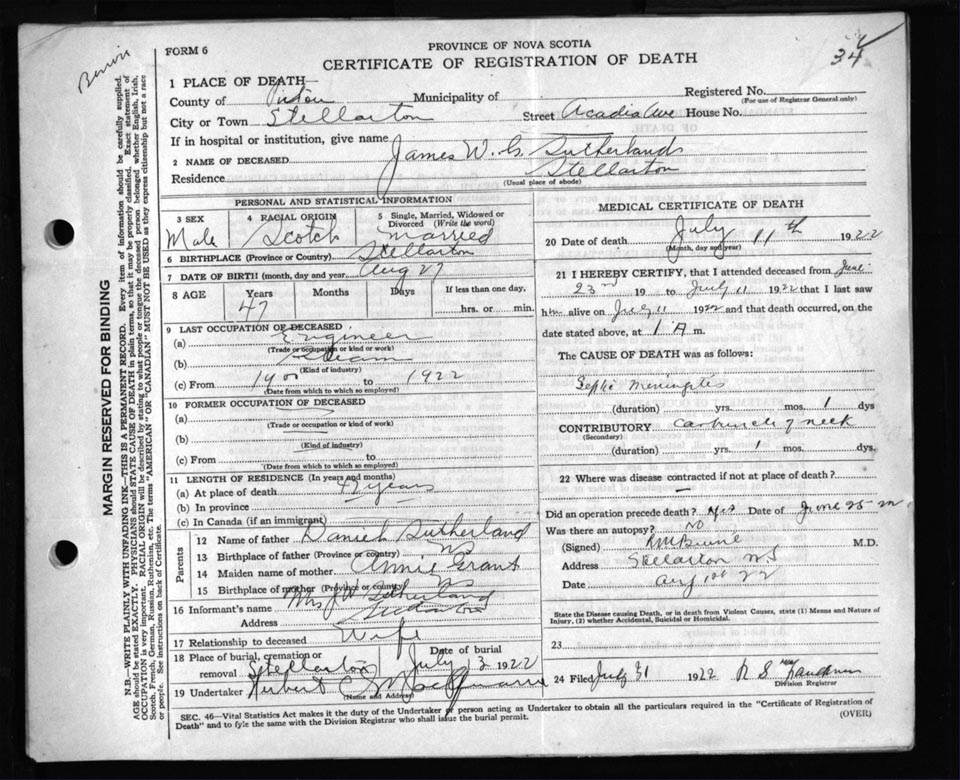 FORM 6
34
PROVINCE OF NOVA SCOTIA
CERTIFICATE OF REGISTRATION OF DEATH
MARGIN RESERVED FOR BINDING
N.B.—WRITE PLAINLY WITH UNFADING INK—THIS IS A PERMANENT RECORD. Every item of information should be carefully supplied.
AGE should be stated EXACTLY. PHYSICIANS should STATE CAUSE OF DEATH in plain terms, so that it may be properly classified. Exact statement of
OCCUPATION is very important. RACIAL ORIGIN will be described by stating to what people or tongue the deceased person belonged whether English, Irish,
Scotch, French, German, Russian, Ruthenian, etc. The terms "AMERICAN" OR "CANADIAN" MUST NOT BE USED as they express citizenship but not a race
or people. See instructions on back of Certificate.
1 PLACE OF DEATH
County of Pictou Municipality of Registered No.
(For use of Registrar General only)
City or Town Stellarton Street Acadia Ave House No.
If in hospital or institution, give name
2 NAME OF DECEASED James W. G. Sutherland
Residence Stellarton
(Usual place of abode)
PERSONAL AND STATISTICAL INFORMATION
3 SEX Male
4 RACIAL ORIGIN Scotch
5 Single, Married, Widowed or Divorced (Write the word) Married
6 BIRTHPLACE (Province or Country) Stellarton
7 DATE OF BIRTH (month, day and year) Aug 27
8 AGE Years Months Days If less than one day,
47 hrs. or min.
9 LAST OCCUPATION OF DECEASED
(a) Engineer
(Trade or occupation or kind or work)
(b) Steam
(Kind of industry)
(c) From 1900 to 1922
(Date from which to which so employed)
10 FORMER OCCUPATION OF DECEASED
(a)
(Trade or occupation or kind of work)
(b)
(Kind of industry)
(c) From to
(Date from which to which so employed)
11 LENGTH OF RESIDENCE (In years and months)
(a) At place of death 47 years
(b) In province
(c) In Canada (if an immigrant)
Parents
12 Name of father Daniel Sutherland
13 Birthplace of father (Province or country) NS
14 Maiden name of mother Annie Grant
15 Birthplace of mother (Province or country) NS
16 Informant's name Mrs J W Sutherland
Address Stellarton
17 Relationship to deceased Wife
18 Place of burial, cremation or removal Stellarton Date of burial July 13 1922
19 Undertaker Herbert
(Name and Address)
MEDICAL CERTIFICATE OF DEATH
20 Date of death July 11th 1922
(Month, day and year)
21 I HEREBY CERTIFY, that I attended deceased from June
23rd 19 to July 11 1922 that I last saw
him alive on July 11 1922 and that death occurred, on the
date stated above, at 1 A m.
The CAUSE OF DEATH was as follows:
Septic Meningitis
(duration) yrs. mos. 1 dys
CONTRIBUTORY carbuncle of neck
(Secondary)
(duration) yrs. 1 mos. dys.
22 Where was disease contracted if not at place of death?
Did an operation precede death? Yes Date of June 25-22
Was there an autopsy? No
(Signed) M.D.
Address Stellarton N.S
Date 22
State the Disease causing Death, or in death from Violent Causes, state (1) Means and Nature of
Injury, (2) whether Accidental, Suicidal or Homicidal.
23
24 Filed July 31 1922 R S
Division Registrar
SEC. 46—Vital Statistics Act makes it the duty of the Undertaker or person acting as Undertaker to obtain all the particulars required in the "Certificate of Registration of
Death" and to fyle the same with the Division Registrar who shall issue the burial permit.
(OVER)